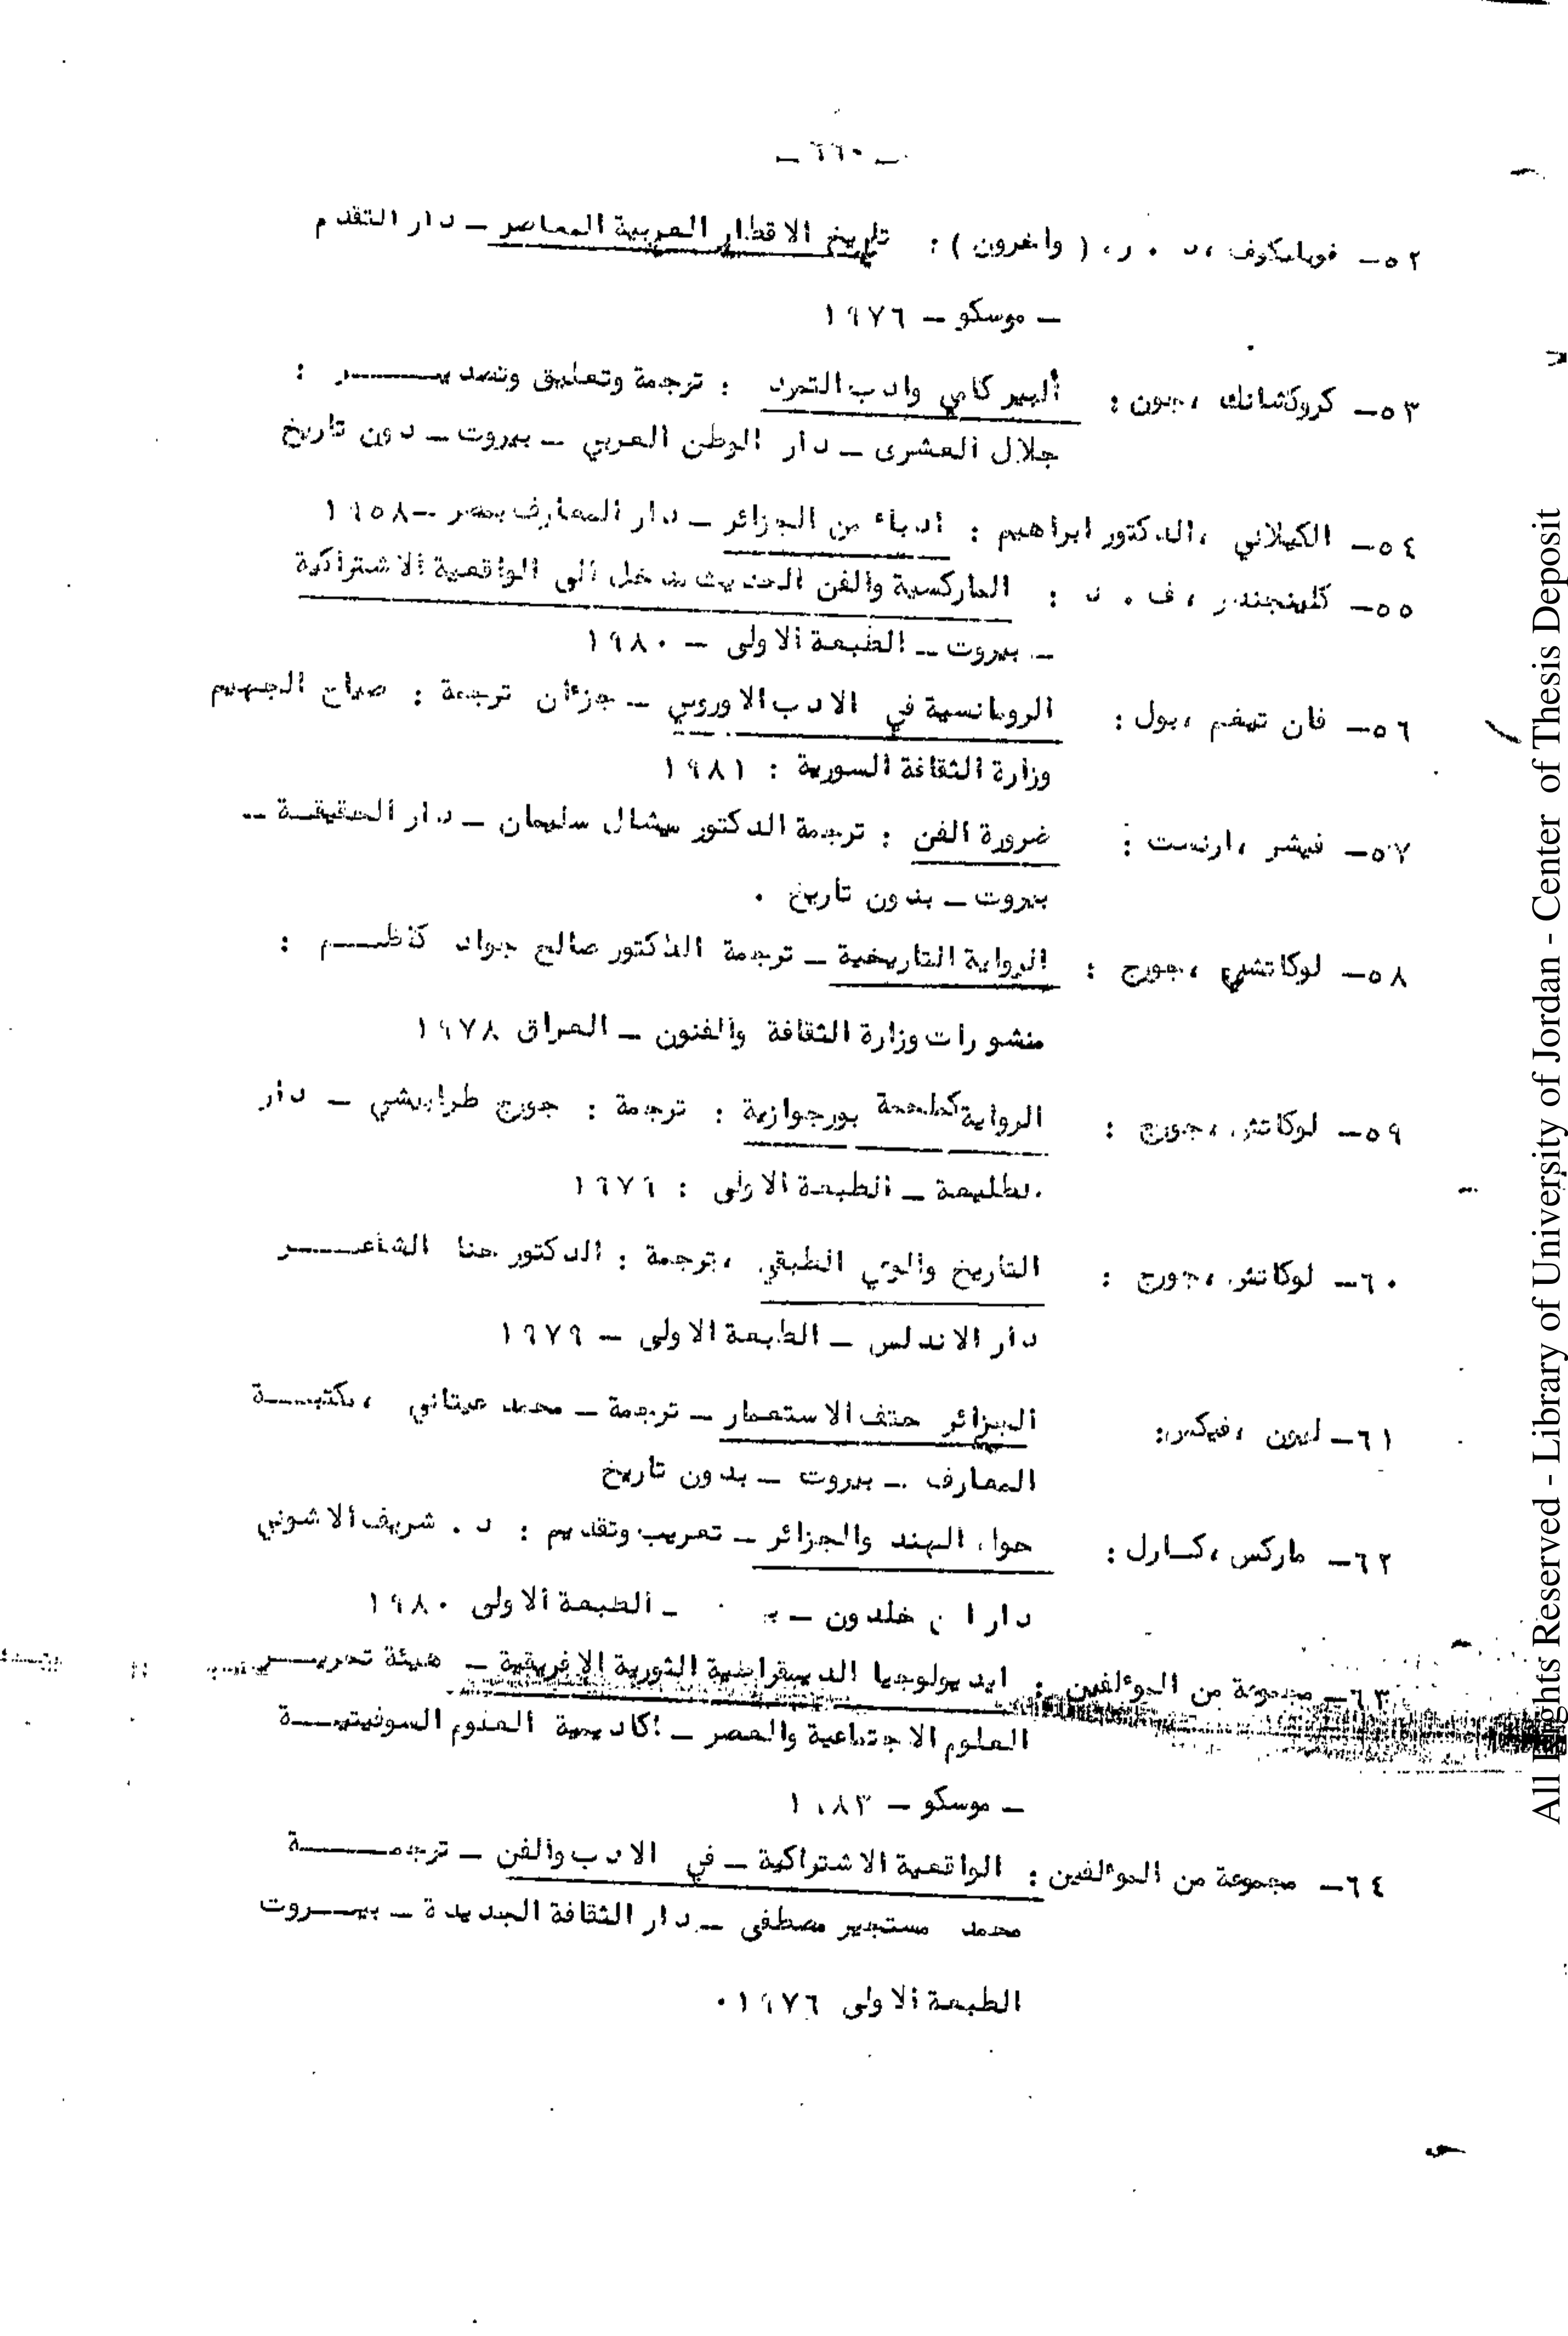 - ٦٦٠ -
٥٢- فوبليكوف ، د . ر ، ( واخرون ) : تاريخ الاقطار العربية المعاصر - دار التقدم
- موسكو - ١٩٧٦
٥٣- كروكشانك ، جون : ألبير كامي وادب التمرد : ترجمة وتعليق وتصديـــر :
جلال العشرى - دار الوطن العربي - بيروت - دون تاريخ
٥٤- الكيلاني ، الدكتور ابراهيم : ادباء من الجزائر - دار المعارف بمصر - ١٩٥٨
٥٥- كلينجندر ، ف . د : الماركسية والفن الحديث مدخل الى الواقعية الاشتراكية
- بيروت - الطبعة الاولى - ١٩٨٠
٥٦- فان تيغم ، بول : الرومانسية في الادب الاوروبي - جزءان ترجمة : صياح الجهيم
وزارة الثقافة السورية : ١٩٨١
٥٧- فيشر ، ارنست : ضرورة الفن : ترجمة الدكتور ميشال سليمان - دار الحقيقـة -
بيروت - بدون تاريخ .
٥٨- لوكاتشي ، جورج : الرواية التاريخية - ترجمة الدكتور صالح جواد كاظـــم :
منشورات وزارة الثقافة والفنون - العراق ١٩٧٨
٥٩- لوكاتش ، جورج : الرواية كملحمة بورجوازية : ترجمة : جورج طرابيشي - دار
الطليعة - الطبعة الاولى : ١٩٧٩
٦٠- لوكاتش ، جورج : التاريخ والوعي الطبقي ، ترجمة : الدكتور حنا الشاعـــر
دار الاندلس - الطبعة الاولى - ١٩٧٩
٦١- ليون ، فيكس : الجزائر حتف الاستعمار - ترجمة - محمد عيتاني ، مكتبـــة
المعارف - بيروت - بدون تاريخ
٦٢- ماركس ، كـارل : حول الهند والجزائر - تعريب وتقديم : د . شريف الاشوني
دار ابن خلدون - - الطبعة الاولى ١٩٨٠
٦٣- مجموعة من الموءلفين : ايديولوجيا الديمقراطية الثورية الافريقية - هيئة تحريـــر
العلوم الاجتماعية والعصر - اكاديمية العلوم السوفيتيـــة
- موسكو - ١٩٨٣
٦٤- مجموعة من الموءلفين : الواقعية الاشتراكية - في الادب والفن - ترجمـــة
محمد مستجير مصطفى - دار الثقافة الجديدة - بيـــروت
الطبعة الاولى ١٩٧٦ .
All Rights Reserved - Library of University of Jordan - Center of Thesis Deposit